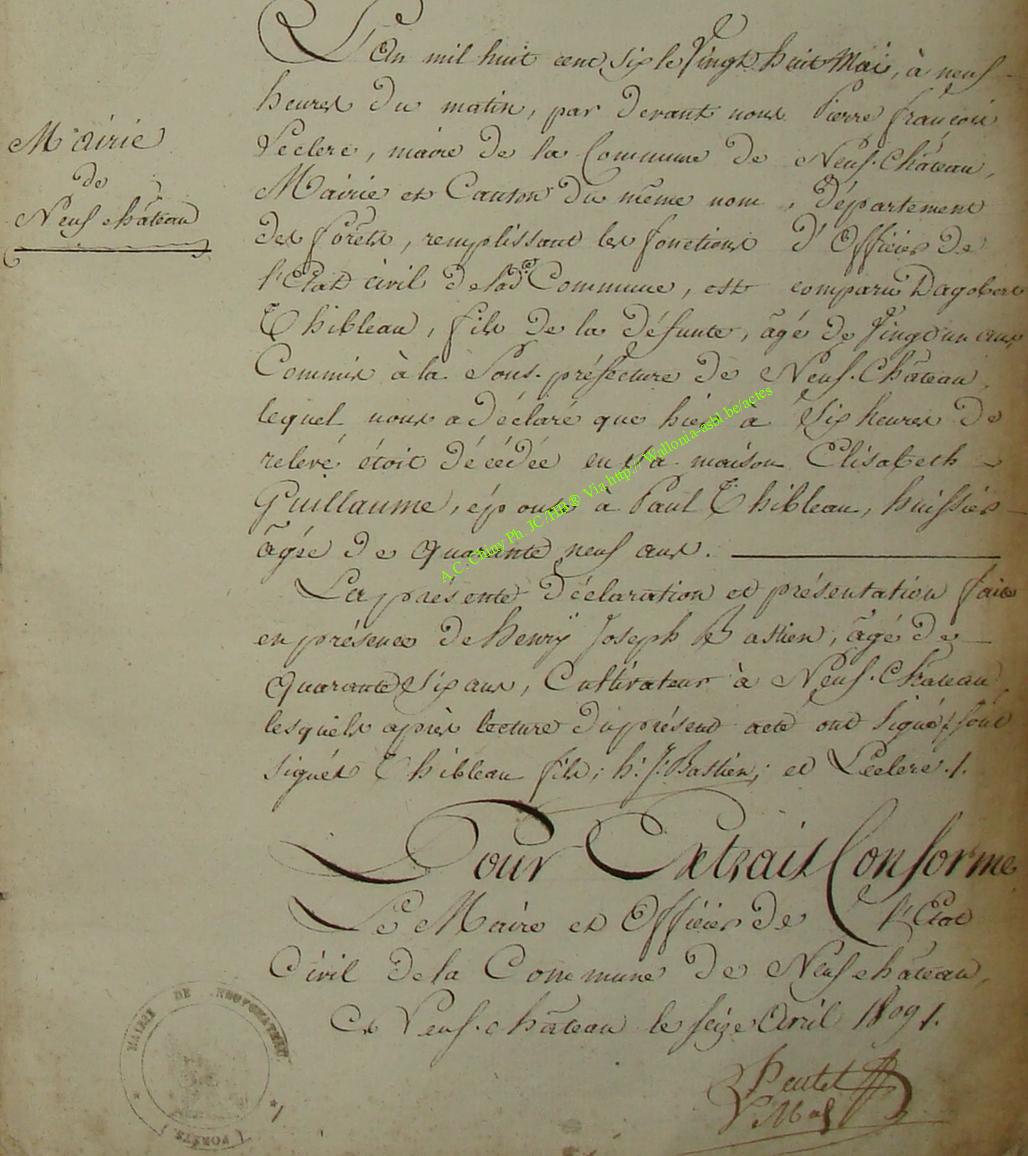 Mairie
de
Neufchâteau
L'An mil huit cent six le Vingt huit Mai, à neuf
heures du matin, par devant nous Pierre françois
Leclerc, maire de la Commune de Neuf-Château,
Mairie et Canton du même nom, département
des forêts, remplissant les fonctions d'Officier de
l'Etat civil de lad.e Commune, est comparu Dagobert
Thibleau, fils de la défunte, âgé de Vingt un ans
Commis à la Sous-préfecture de Neuf-Château,
lequel nous a déclaré que hier à Six heures de
relevé étoit décédée en sa maison Elisabeth
Guillaume, épouse à Paul Thibleau, huissier
âgée de quarante neuf ans.
La présente déclaration et présentation faite
en présence de henry Joseph Bastien, âgé de
quarante Six ans, Cultivateur à Neuf-Château,
lesquels après lecture du présent acte ont Signé, sont
signés Thibleau fils; h. J. Bastien; et Leclerc ./.
Pour Extrait Conforme
Le Maire et Officier de l'Etat
Civil de la Commune de Neufchâteau,
Ce Neuf-château le seize Avril 1809 /.
MAIRIE DE NEUFCHATEAU
(FORETS)
A.C. Chiny Ph. JC/HB® Via http://Wallonia-asbl.be/actes